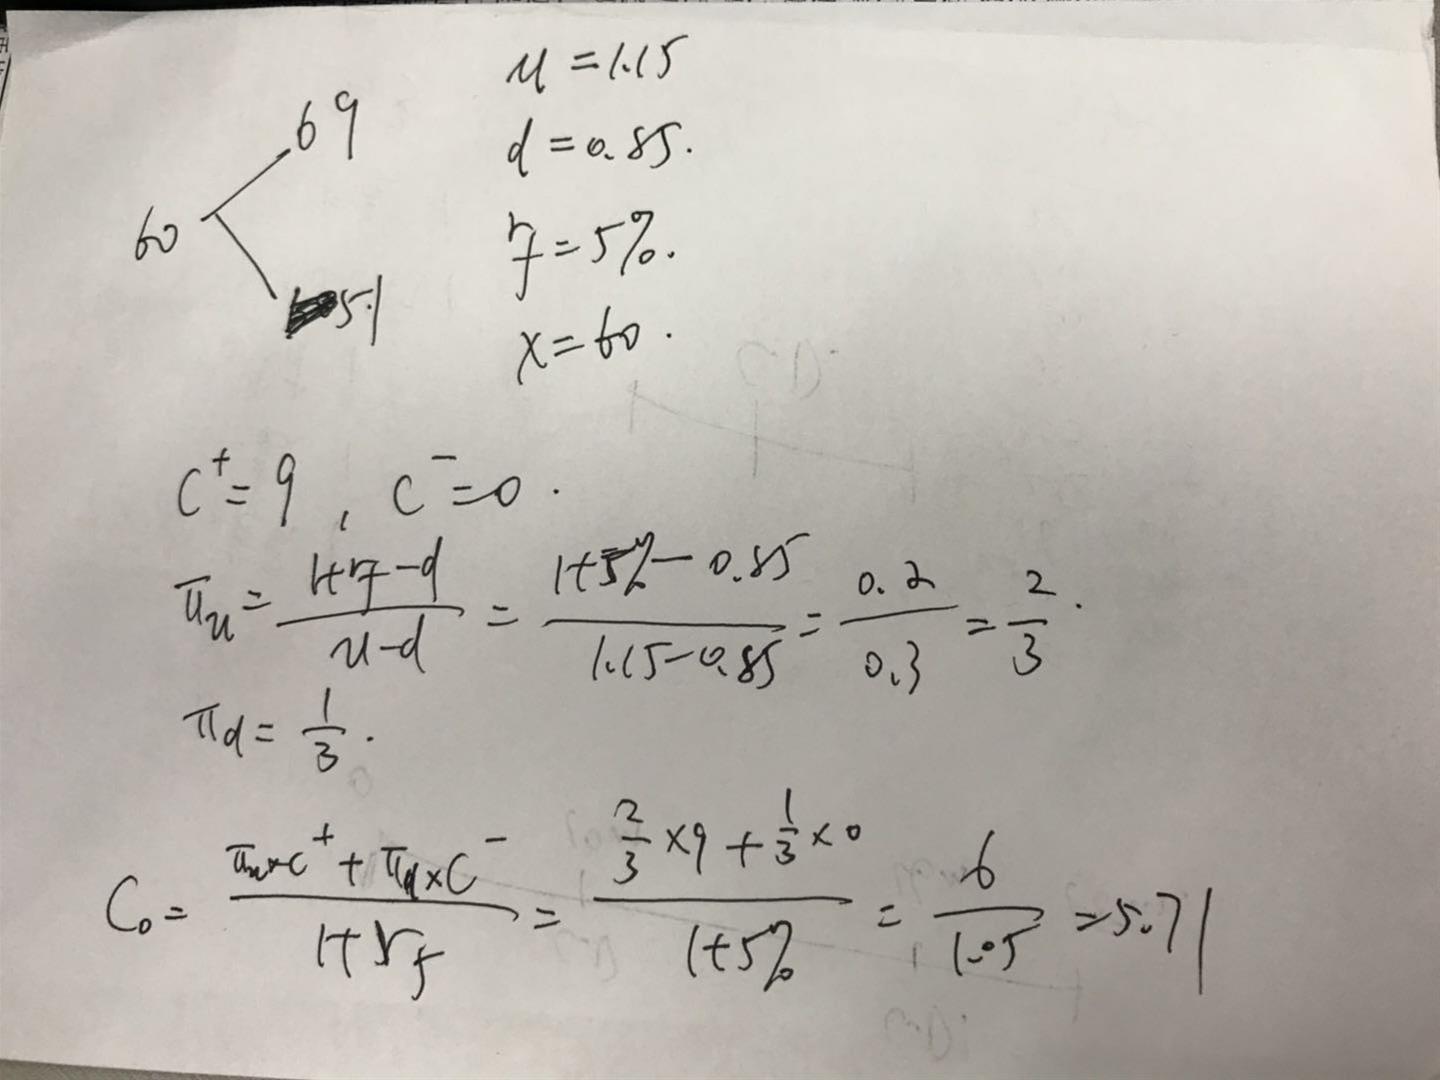 69
60
51
u = 1.15
d = 0.85.
rf = 5%.
x = 60.
C⁺ = 9, C⁻ = 0.
πu = (1+rf-d)/(u-d) = (1+5%-0.85)/(1.15-0.85) = 0.2/0.3 = 2/3.
πd = 1/3.
C₀ = (πu×C⁺ + πd×C⁻)/(1+rf) = (2/3×9 + 1/3×0)/(1+5%) = 6/1.05 = 5.71